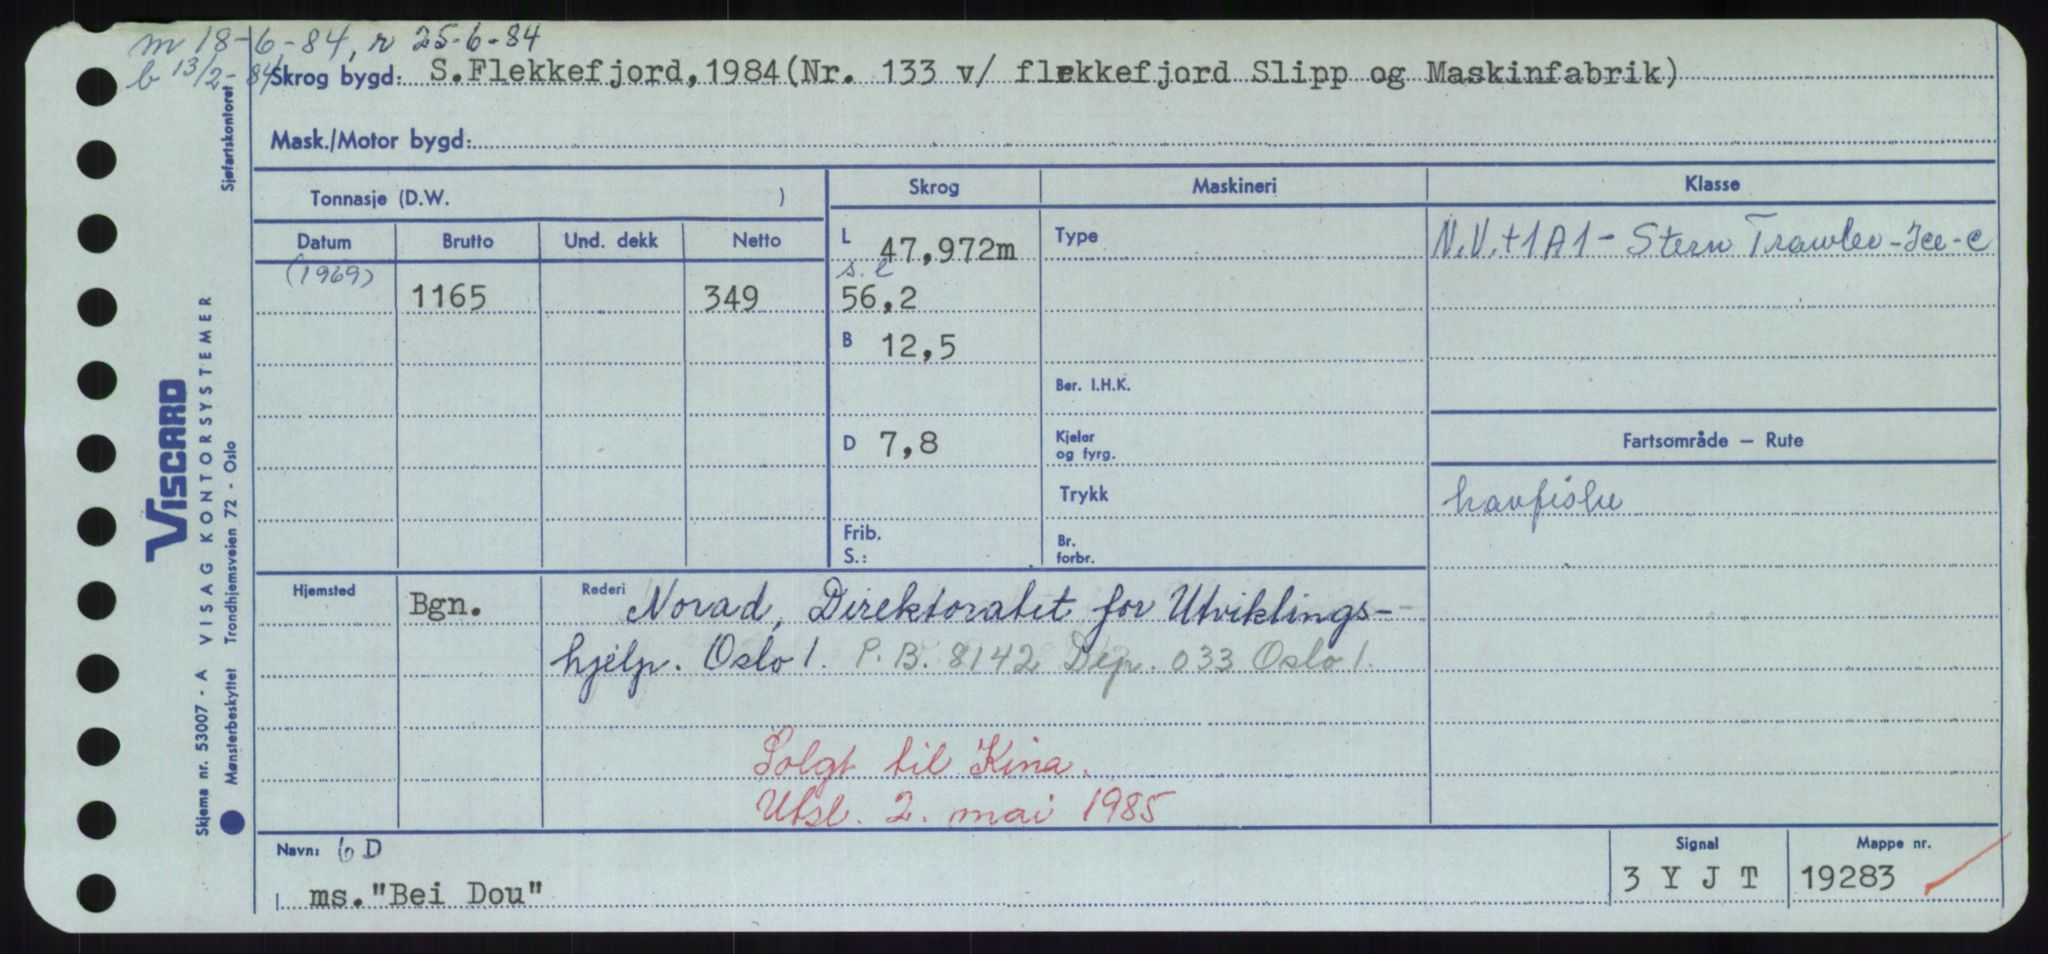 m 18-6-84, r 25-6-84
b 13/2-84
Skrog bygd: S.Flekkefjord,1984(Nr. 133 v/ flekkefjord Slipp og Maskinfabrik)
Mask./Motor bygd:
Tonnasje (D.W. )
Skrog
Maskineri
Klasse
Datum
Brutto
Und. dekk
Netto
L 47,972m
Type
N.V.+1A1- Stern Trawler-Ice-C
(1969)
1165
349
s.l
56,2
B 12,5
Ber. I.H.K.
D 7,8
Kjeler
og fyrg.
Fartsområde – Rute
Trykk
havfiske
Frib.
S.:
Br.
forbr.
Hjemsted
Bgn.
Rederi Norad, Direktoratet for Utviklings-
hjelp. Oslo 1. P.B. 8142 Dep. 033 Oslo 1.
Solgt til Kina.
Utsl. 2. mai 1985
Navn: 6 D
ms."Bei Dou"
Signal
3 Y J T
Mappe nr.
19283
Sjøfartskontoret
VISCARD
Skjema nr. 53007 - A VISAG KONTORSYSTEMER
Mønsterbeskyttet Trondhjemsveien 72 - Oslo